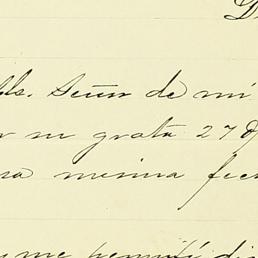 D
lls. Señor de mi
r su grata 27 d
sa misma fec
y me permití di